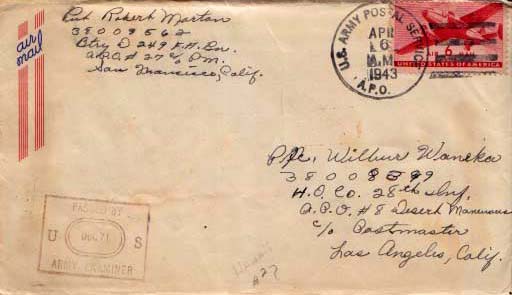 air
mail
Pvt Robert Morton
38008562
Btry D 249 F.A. Bn.
A.P.O. # 27 c/o P.M.
San Francisco, Calif.
U.S. ARMY POSTAL SERVICE
APR
6
A.M.
1943
A.P.O.
6¢
UNITED STATES OF AMERICA
Pfc. Wilbur Waneka
38008599
H.Q. Co. 28th Inf.
A.P.O. #8 Desert Maneuvers
c/o Postmaster
Los Angeles, Calif.
PASSED BY
U S
ARMY EXAMINER
#27